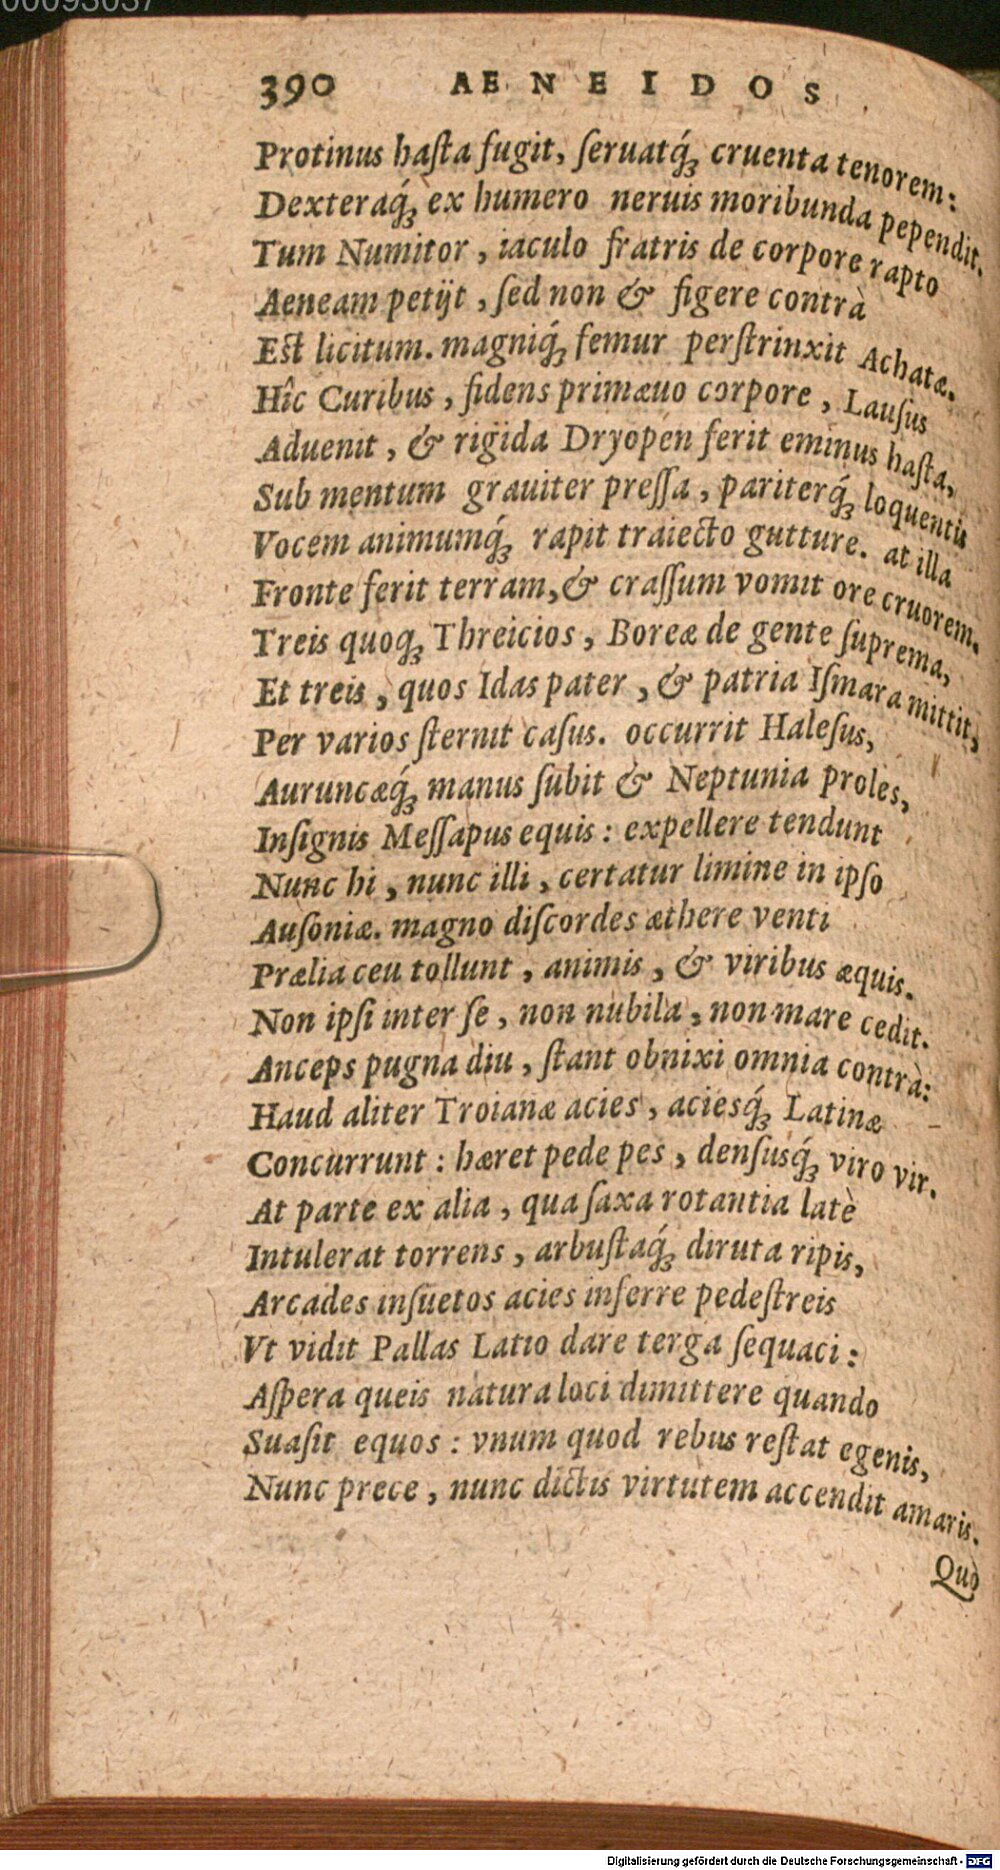 00093037
390 AENEIDOS
Protinus haſta fugit, ſeruatq́ꝫ cruenta tenorem:
Dexteraq́ꝫ ex humero neruis moribunda pependit.
Tum Numitor, iaculo fratris de corpore rapto
Aeneam petijt, ſed non & figere contrà
Eſt licitum. magniq́ꝫ femur perſtrinxit Achatæ.
Hîc Curibus, fidens primæuo corpore, Lauſus
Aduenit, & rigida Dryopen ferit eminus haſta,
Sub mentum grauiter preſſa, pariterq́ꝫ loquentis
Vocem animumq́ꝫ rapit traiecto gutture. at illa
Fronte ferit terram, & craſſum vomit ore cruorem.
Treis quoqꝫ Threicios, Boreæ de gente ſuprema,
Et treis, quos Idas pater, & patria Iſmara mittit,
Per varios ſternit caſus. occurrit Haleſus,
Auruncæq́ꝫ manus ſubit & Neptunia proles,
Inſignis Meſſapus equis: expellere tendunt
Nunc hi, nunc illi, certatur limine in ipſo
Auſoniæ. magno diſcordes æthere venti
Prælia ceu tollunt, animis, & viribus æquis.
Non ipſi inter ſe, non nubila, non mare cedit.
Anceps pugna diu, ſtant obnixi omnia contrà:
Haud aliter Troianæ acies, aciesq́ꝫ Latinæ
Concurrunt: hæret pede pes, denſusq́ꝫ viro vir.
At parte ex alia, qua ſaxa rotantia latè
Intulerat torrens, arbuſtaq́ꝫ diruta ripis,
Arcades inſuetos acies inferre pedeſtreis
Vt vidit Pallas Latio dare terga ſequaci:
Aſpera queis natura loci dimittere quando
Suaſit equos: vnum quod rebus reſtat egenis,
Nunc prece, nunc dictis virtutem accendit amaris.
Quò
Digitalisierung gefördert durch die Deutsche Forschungsgemeinschaft - DFG